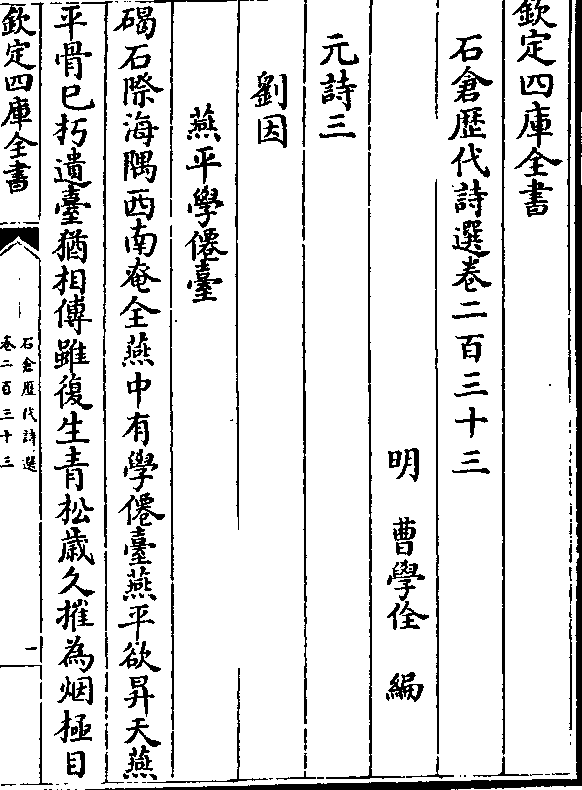 欽定四庫全書
石倉歴代詩選卷二百三十三
明　曹學佺　編
元詩三
劉因
燕平學僊臺
碣石際海隅西南奄全燕中有學僊臺燕平欲昇天燕
平骨已朽遺臺猶相傳雖復生青松歳久摧為烟極目
欽定四庫全書
石倉歴代詩選
卷二百三十三
一